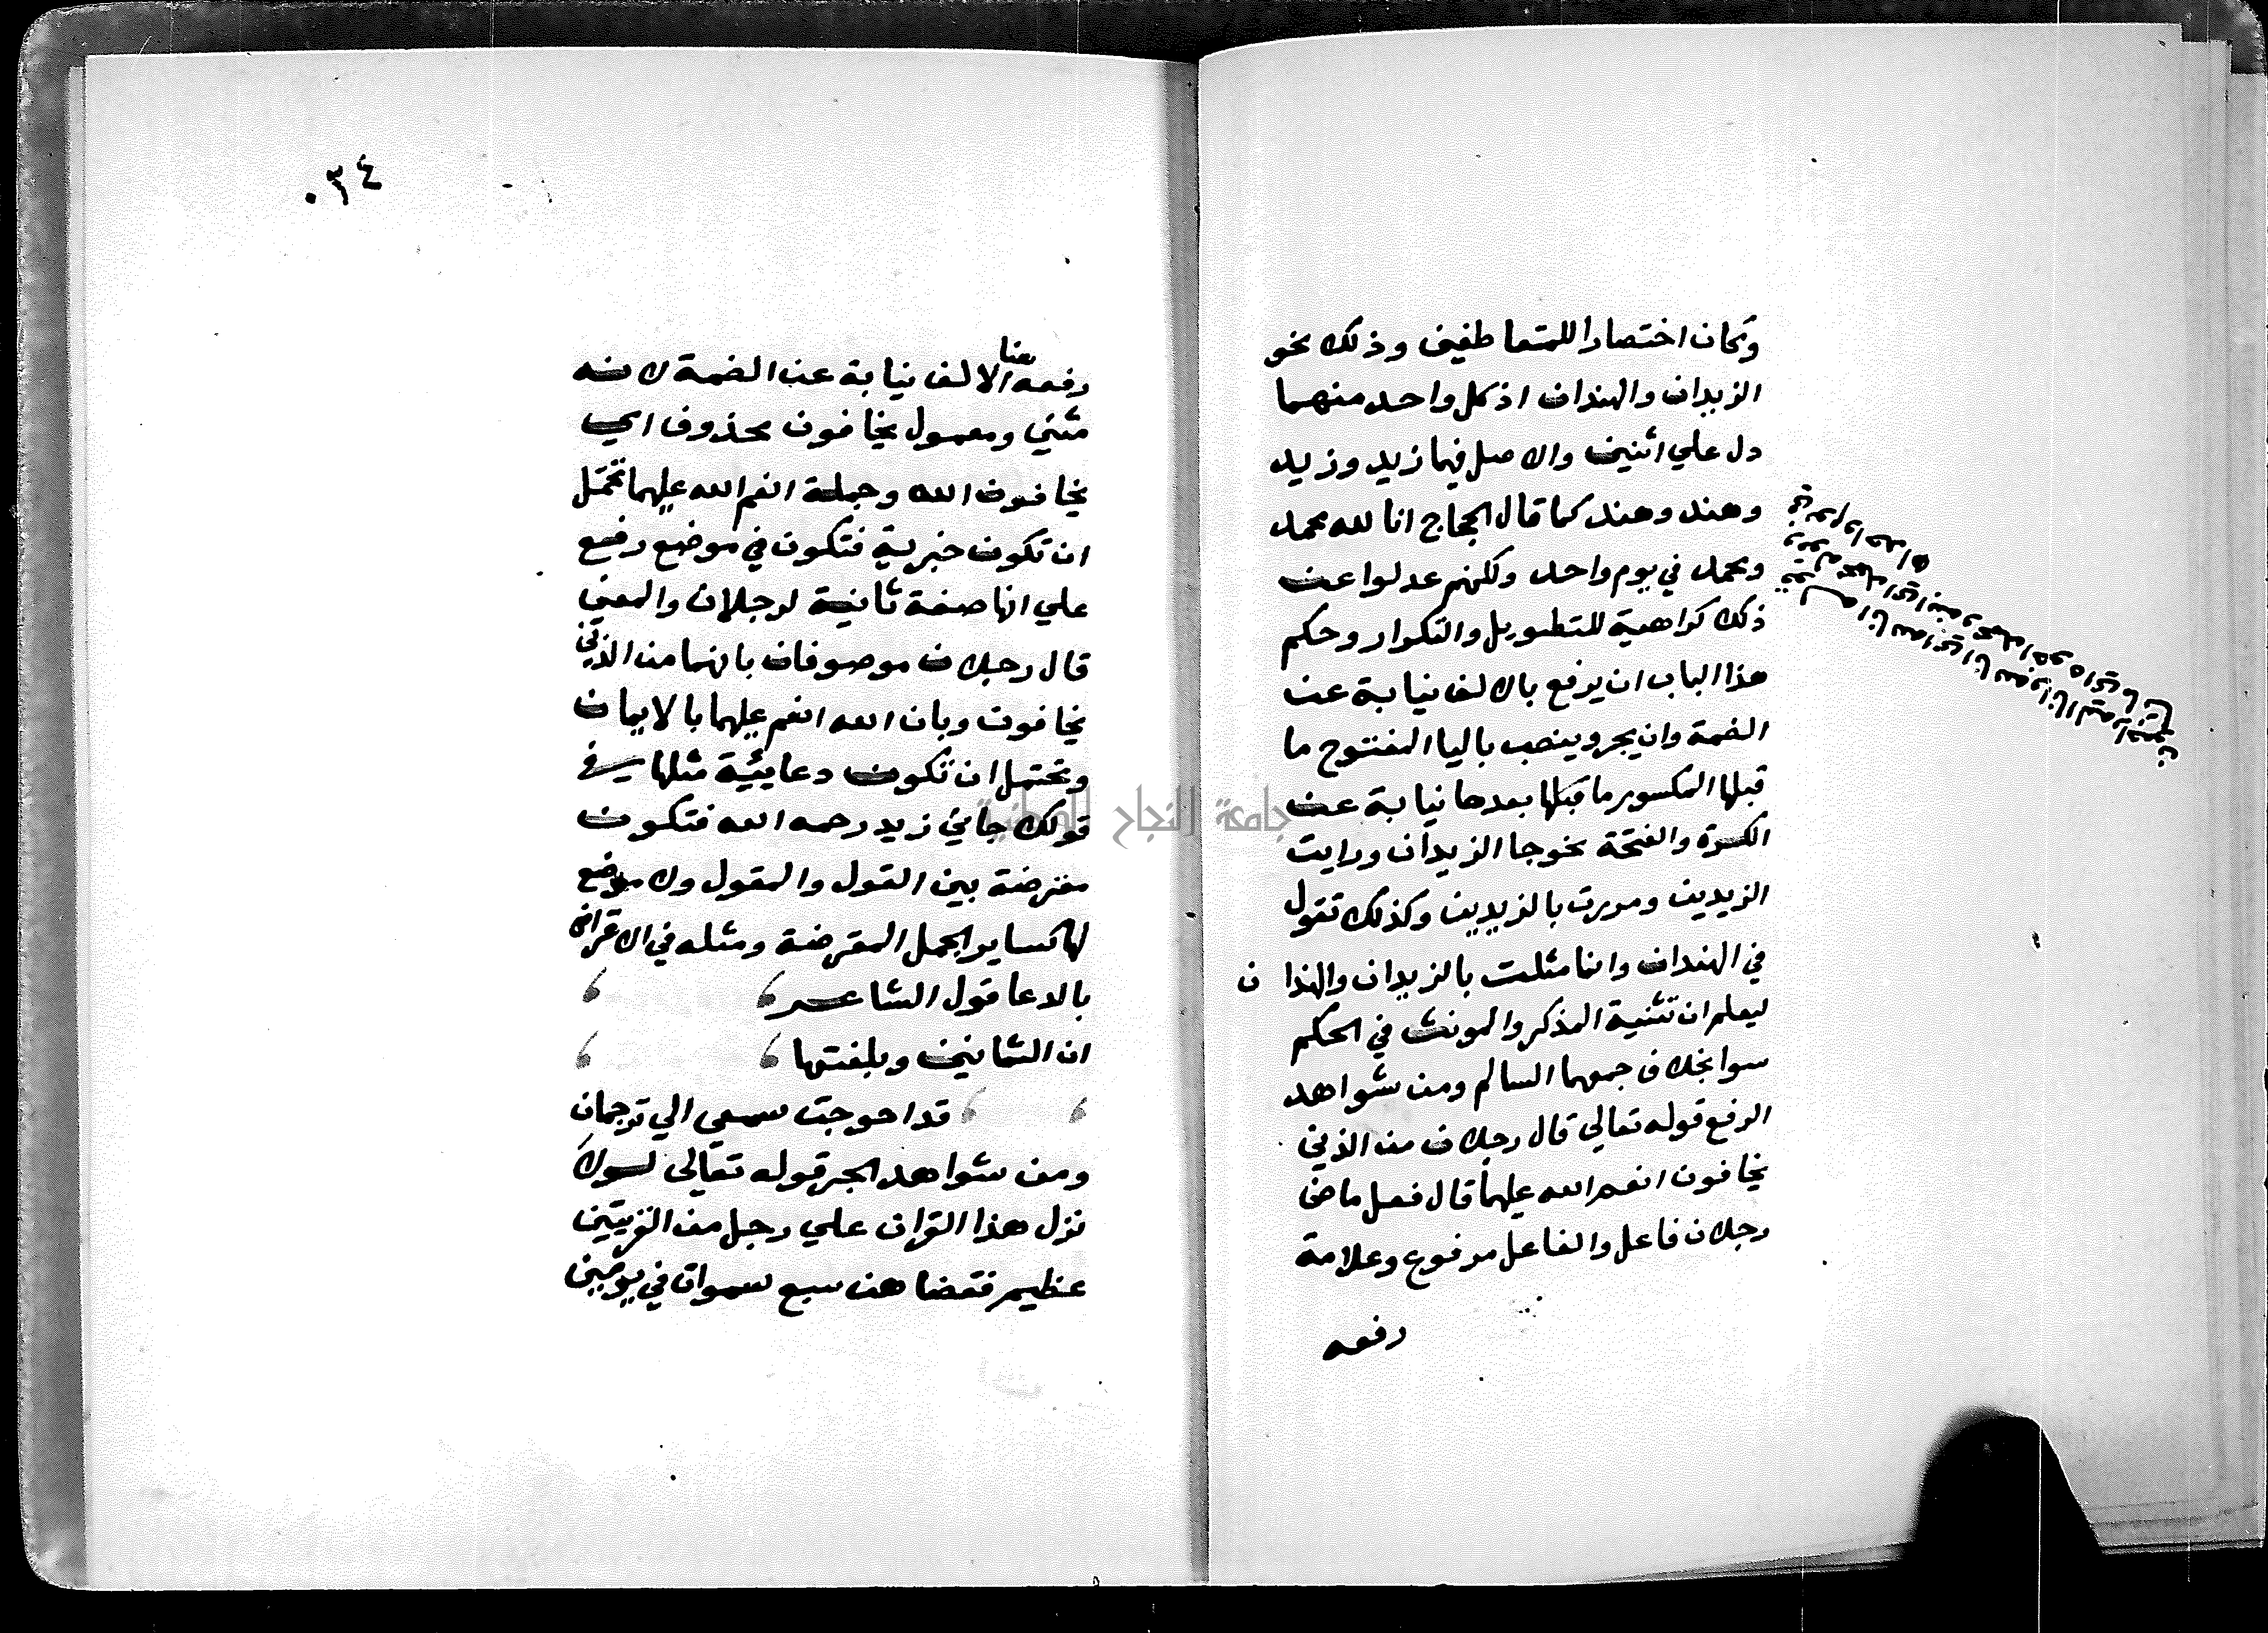 وكان اختصارا للمتعاطفين وذلك نحو
الزيدان والهندان اذ كل واحد منهما
دل علي اثنين والاصل فيهما زيد وزيد
وهند وهند كما قال الحجاج انا لله محمد
ومحمد في يوم واحد ولكنهم عدلوا عن
ذلك كراهية للتطويل والتكرار وحكم
هذا الباب ان يرفع بالالف نيابة عن
الضمة وان يجر وينصب باليا المفتوح ما
قبلها المكسور ما بعدها نيابة عن
الكسرة والفتحة نحو جا الزيدان ورايت
الزيدين ومررت بالزيدين وكذلك تقول
في الهندان وانما مثلت بالزيدان والهندا ن
ليعلم ان تثنية المذكر والمونث في الحكم
سوا بخلاف جمعهما السالم ومن شواهد
الرفع قوله تعالي قال رجلان من الذين
يخافون انعم الله عليهما قال فعل ماض
رجلان فاعل والفاعل مرفوع وعلامة
رفعه
٠٣٤
رفعه هنا الالف نيابة عن الضمة لانه
مثني ومعمول يخافون محذوف اي
يخافون الله وجملة انعم الله عليهما تحتمل
ان تكون خبرية فتكون في موضع رفع
علي انها صفة ثانية لرجلان والمعني
قال رجلان موصوفان بانهما من الذين
يخافون وبان الله انعم عليهما بالايمان
وتحتمل ان تكون دعايئية مثلها في
قولك جاني زيد رحمه الله فتكون
معترضة بين القول والمقول ولا موضع
لها كساير الجمل المعترضة ومثله في الاعتراض
بالدعا قول الشاعر
ان الثمانين وبلغتها
قد احوجت سمعي الي ترجمان
ومن شواهد الجر قوله تعالي لولا
نزل هذا القران علي رجل من القريتين
عظيم فقضاهن سبع سموات في يومين
جامعة النجاح الوطنية